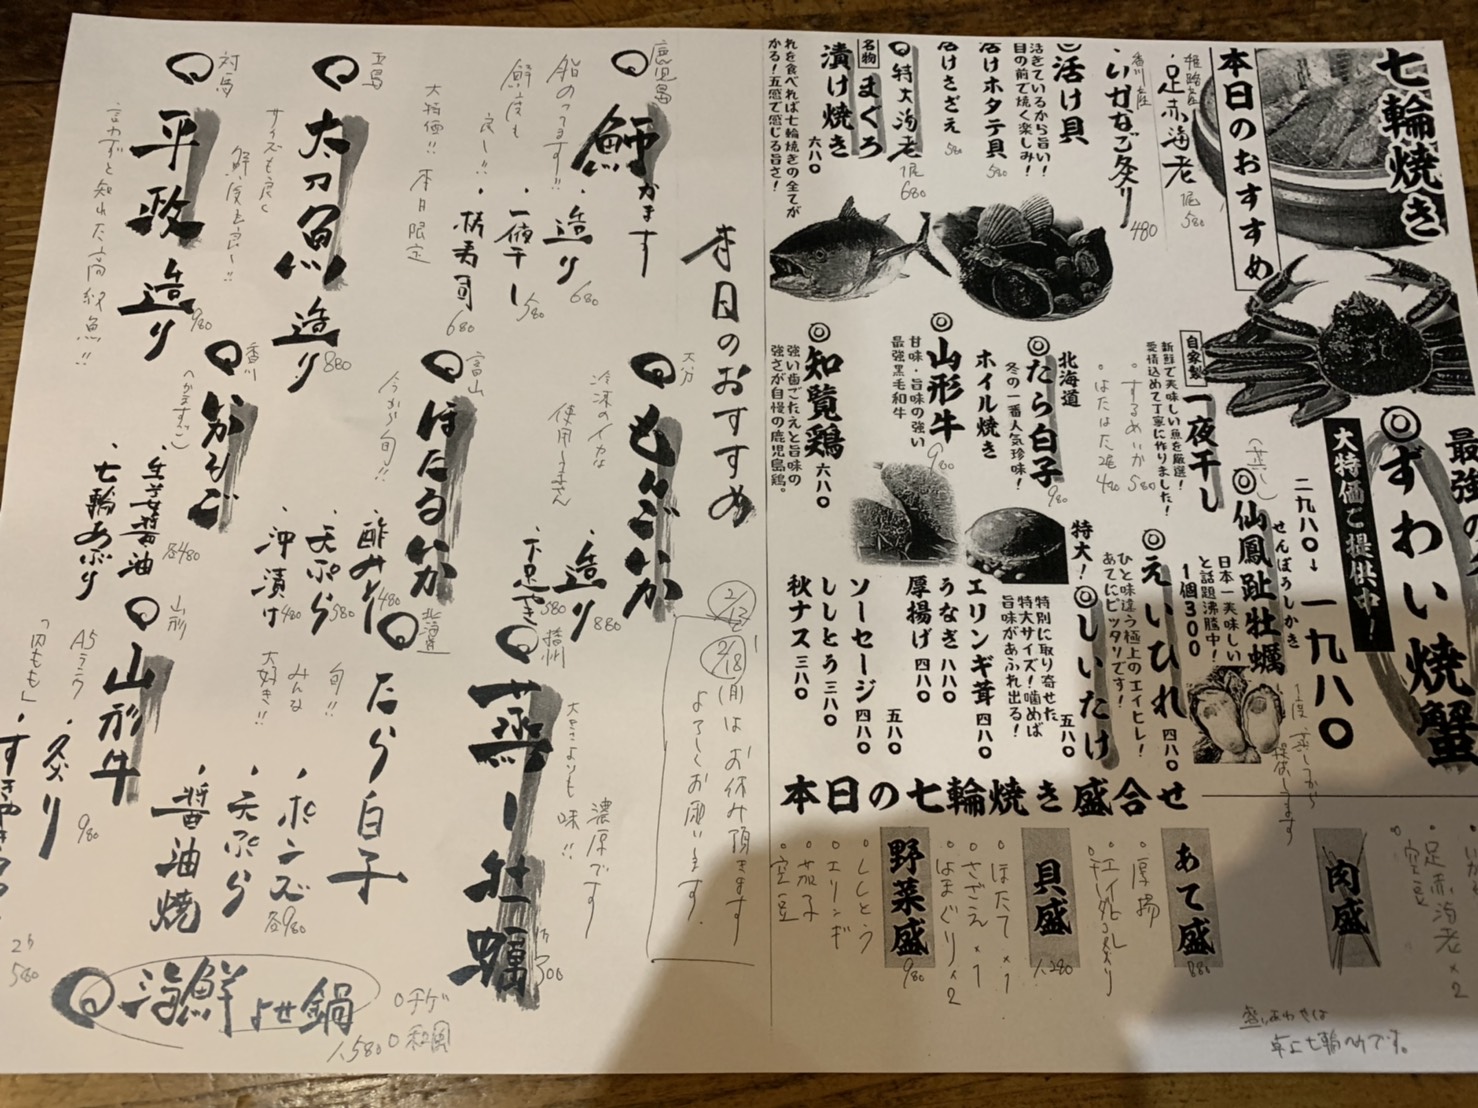 七輪焼き
本日のおすすめ
足赤海老
1尾 580
香川産
いかなご炙り
480
◎活け貝
活きているから旨い！
目の前で焼く楽しみ！
活けホタテ貝
580
活けさざえ
580
◎特大海老
1尾
680
名物
まぐろ
漬け焼き
六八〇
れを食べれば七輪焼きの全てが
かる！五感で感じる旨さ！
最強の
◎ずわい焼蟹
大特価ご提供中！
二九八〇→一九八〇
自家製
一夜干し
新鮮で美味しい魚を厳選！
愛情込めて丁寧に作りました！
。するめいか 580
。はたはた2尾 480
◎仙鳳趾牡蠣
せんぽうしかき
日本一美味しい
と話題沸騰中！
1個300
◎えいひれ
四八〇
ひと味違う極上のエイヒレ！
あてにピッタリです！
特大！
◎しいたけ
五八〇
特別に取り寄せた
特大サイズ！噛めば
旨味があふれ出る！
北海道
◎たら白子
冬の一番人気珍味！
980
ホイル焼き
◎山形牛
甘味・旨味の強い
最強黒毛和牛
980
◎知覧鶏
六八〇
強い歯ごたえと旨味の
強さが自慢の鹿児島鶏。
エリンギ茸 四八〇
うなぎ 八八〇
厚揚げ 四八〇
五八〇
ソーセージ 四八〇
ししとう 三八〇
秋ナス 三八〇
本日の七輪焼き盛合せ
。足赤海老×2
。空豆
肉盛
あて盛
880
。厚揚
。エイヒレ
貝盛
1,280
。ほたて×1
。さざえ×1
。はまぐり×2
野菜盛
980
。ししとう
。エリンギ
。茄子
。空豆
盛り合わせは
卓上七輪へのです。
本日のおすすめ
鹿児島
かます
脂のってます!!
鮮度も
良し!!
・造り
680
・一夜干し
580
・棒寿司
680
大特価!! 本日限定
五島
太刀魚
造り
880
サイズも良く
鮮度も良し!!
対馬
平政
造り
980
言わずと知れた高級魚!!
大分
もんごいか
冷凍のイカは
使用しません
・造り
880
・下足やき
580
富山
ほたるいか
今から旬!!
・酢みそ
480
・天ぷら
580
・沖漬け
480
香川
いかなご
・生姜醤油
・七輪あぶり
各480
2/12
2/18(月)はお休み頂きます
よろしくお願います。
播州
蒸し牡蠣
大きさよりも味!!
濃厚です
300
北海道
たら白子
旬!!
みんな
大好き!!
・ポンズ
・天ぷら
・醤油焼
各980
山形
山形牛
A5ランク
「内もも」
・炙り
980
海鮮よせ鍋
1,580
○チゲ
○和風